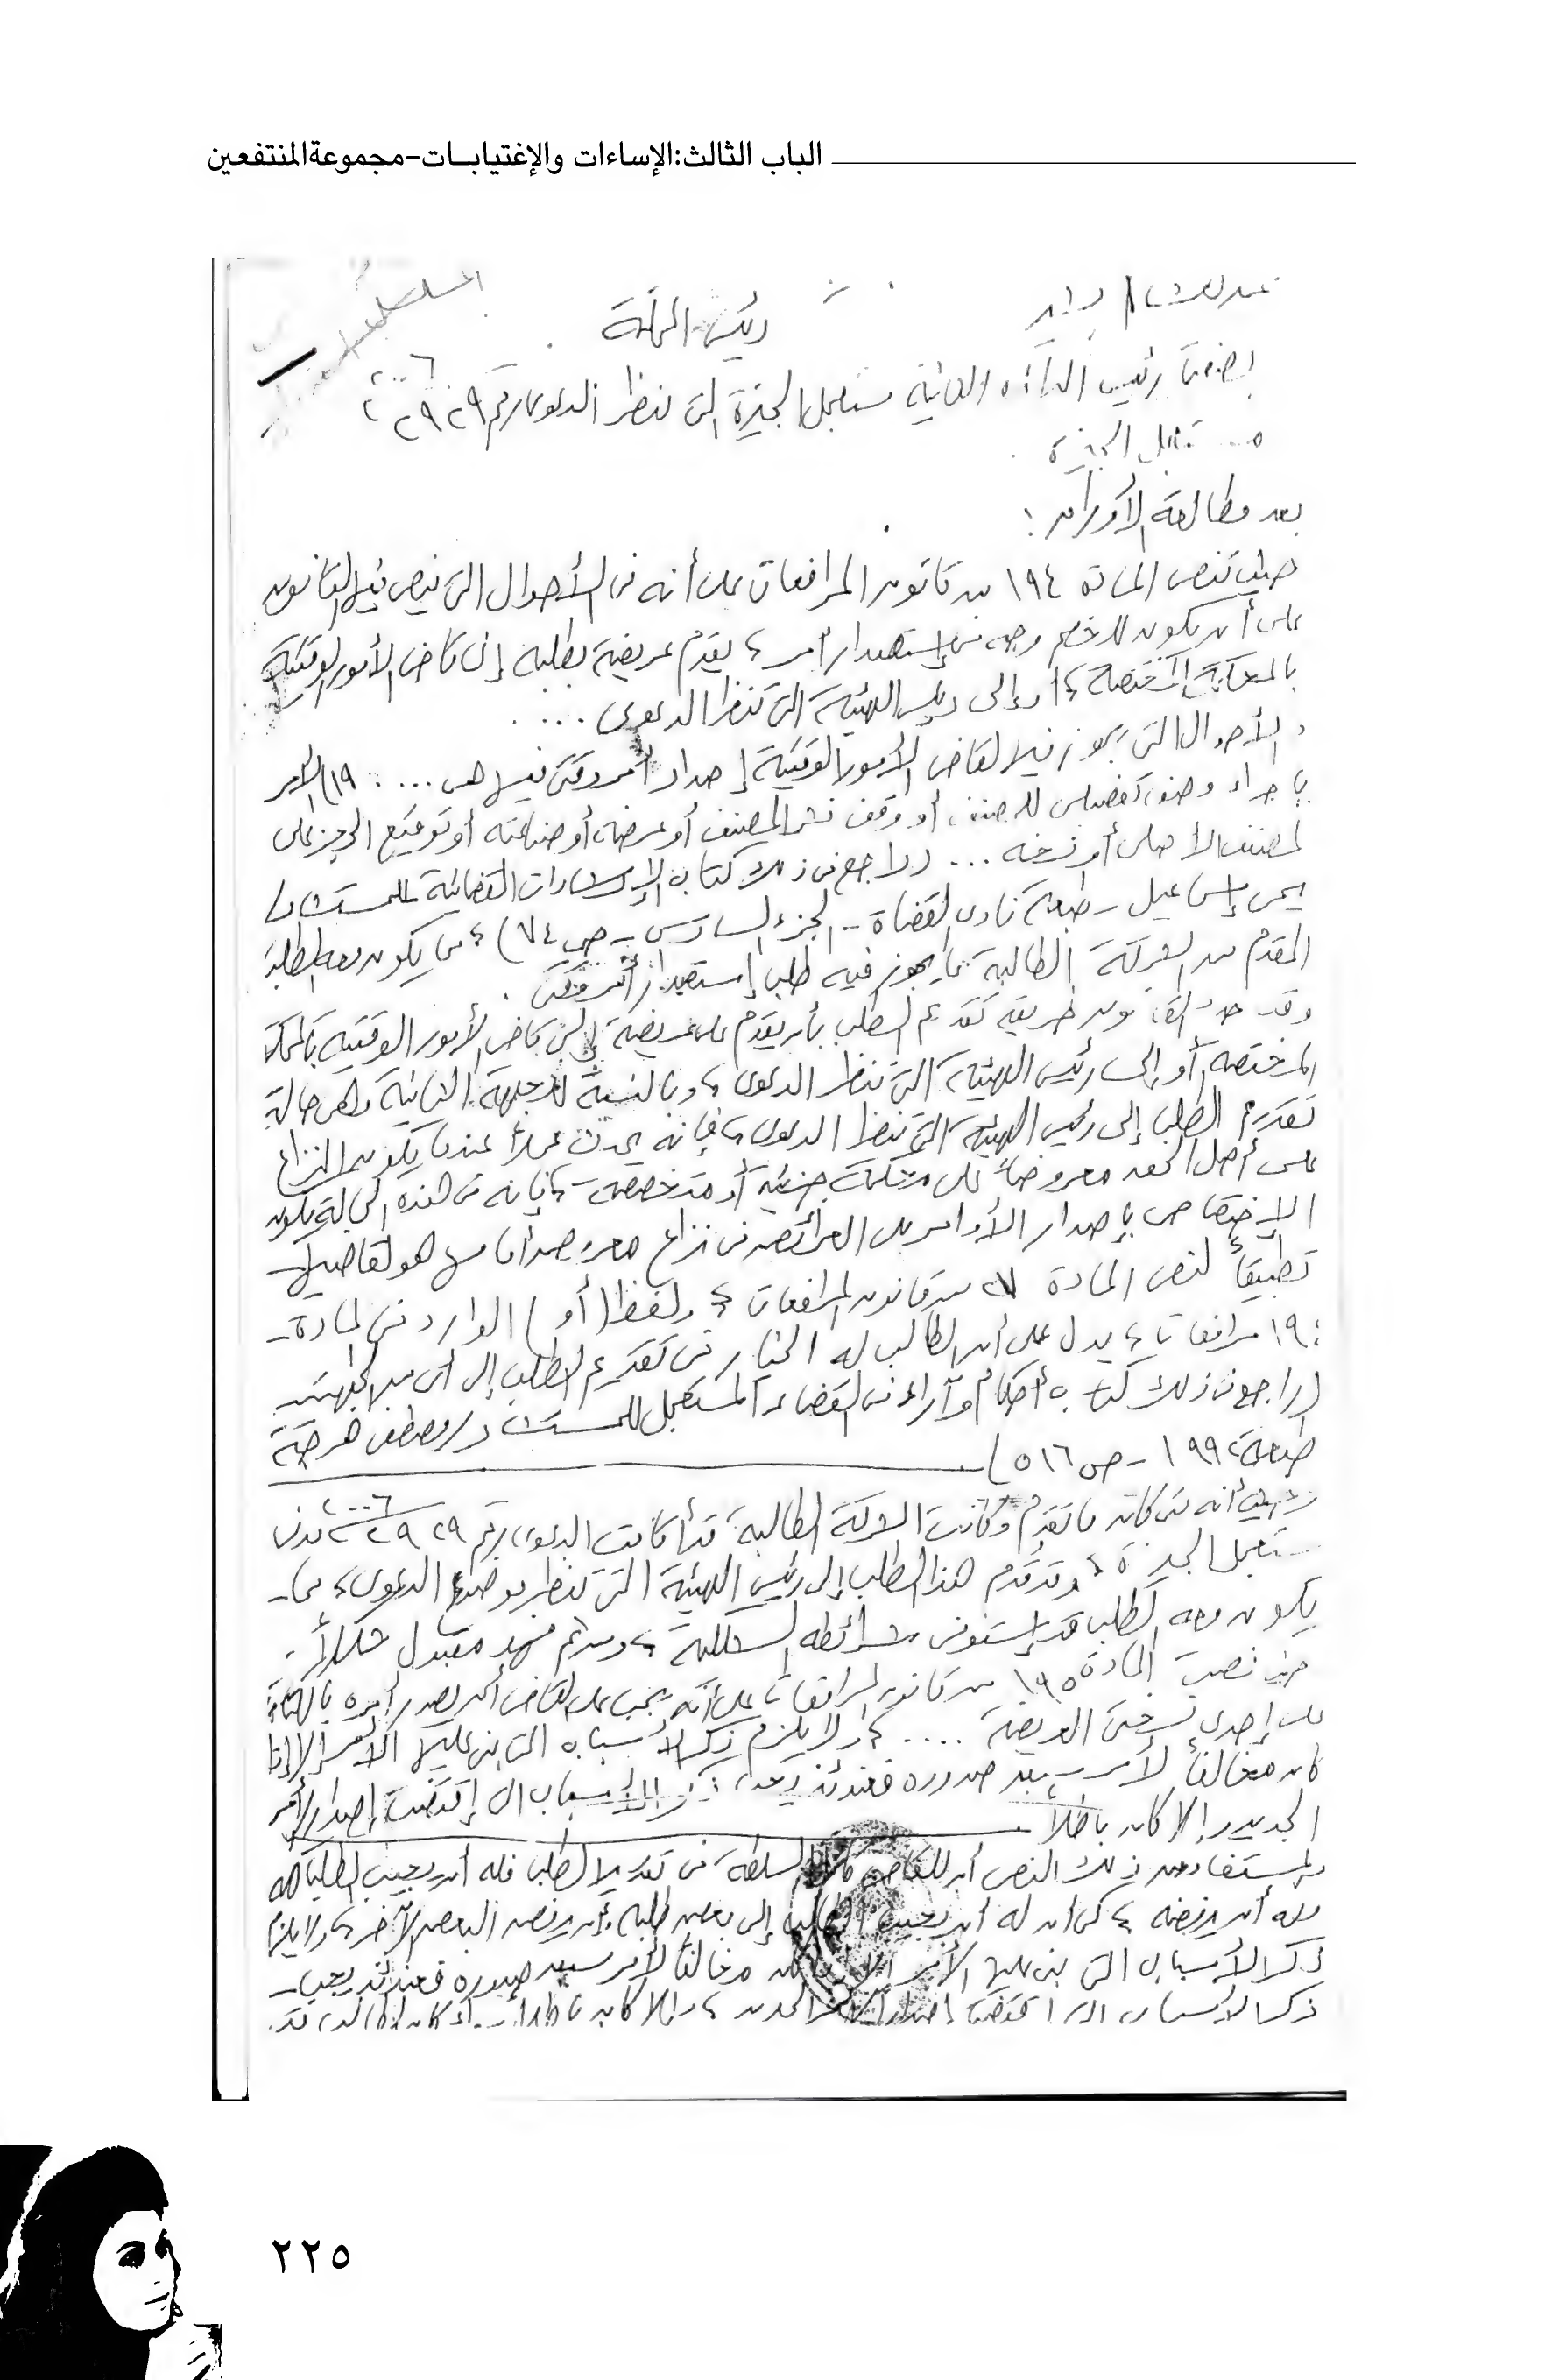 الباب الثالث:الإساءات والإغتيابــات-مجموعةالمنتفعين
رئيس المحكمة
بصفتنا رئيس الدائرة الثانية مستعجل الجيزة التى تنظر الدعوى رقم ٢٩٢٩ ٢٠٠٦
بعد مطالعة الأوراق :
حيث تنص المادة ١٩٤ من قانون المرافعات على أنه فى الأحوال التى ينص فيها القانون
على أن يكون للخصم وجه فى إستصدار أمر ، يقدم عريضة بطلبه إلى قاضى الأمور الوقتية
بالمحكمة المختصة ، أو إلى رئيس الهيئة التى تنظر الدعوى ....
والأحوال التى يجوز فيها لقاضى الأمور الوقتية إصدار أمر وقتى فيها هى .... ١٩) الأمر
بإجراء وصف تفصيلى للمصنف أو وقف نشر المصنف أو عرضه أو صناعته أو توقيع الحجز على
المصنف الأصلى أو نسخه ... (راجع فى ذلك كتاب الإرشادات القضائية للمستشار/
يحى إسماعيل - طبعة نادى القضاة - الجزء السادس - ص ٧٤) ، مما يكون معه الطلب
المقدم من الشركة الطالبة مما يجوز فيه طلب إستصدار أمر وقتى .
وقد حدد القانون طريقة تقديم الطلب بأن يقدم على عريضة إلى قاضى الأمور الوقتية بالمحكمة
المختصة أو إلى رئيس الهيئة التى تنظر الدعوى ، وبالنسبة للجهة الثانية وهى حالة
تقديم الطلب إلى رئيس الهيئة التى تنظر الدعوى ، فإنه يحدث عملاً عندما يكون النزاع
على أصل الحق معروضاً على محكمة جزئية أو متخصصة - فإنه فى هذه الحالة يكون
الإختصاص بإصدار الأوامر على العرائض فى نزاع معروض أمامها هو لقاضيها -
تطبيقاً لنص المادة ٢٧ من قانون المرافعات ، ولفظ (أو) الوارد فى المادة -
١٩٤ مرافعات ، يدل على أن الطالب له الخيار فى تقديم الطلب إلى أى من الجهتين
(راجع فى ذلك كتاب أحكام وآراء فى القضاء المستعجل للمستشار/ مصطفى هرجة
طبعة ١٩٩٢ - ص ٥١٦)
وحيث أنه متى كان ما تقدم وكانت الشركة الطالبة قد أقامت الدعوى رقم ٢٩٢٩ ٢٠٠٦ مدنى
مستعجل الجيزة ، وقد قدم هذا الطلب إلى رئيس الهيئة التى تنظر موضوع الدعوى ، مما -
يكون معه الطلب قد إستوفى شرائطه الشكلية ، ومن ثم فهو مقبول شكلاً -
حيث نصت المادة ١٩٥ من قانون المرافعات على أنه يجب على القاضى أن يصدر أمره بالكتابة
على إحدى نسختى العريضة .... ، ولا يلزم ذكر الأسباب التى بنى عليها الأمر إلا إذا
كان مخالفاً لأمر سبق صدوره فعندئذ يجب ذكر الأسباب التى إقتضت إصدار الأمر
الجديد وإلا كان باطلاً
والمستفاد من ذلك النص أن للقاضى كامل السلطة فى تقدير الطلب فله أن يجيب الطلب كله
وله أن يرفضه ، كما أن له أن يجيب الطالب إلى بعض طلبه وأن يرفض البعض الآخر ، ولا يلزم
ذكر الأسباب التى بنى عليها الأمر إلا إذا كان مخالفاً لأمر سبق صدوره فعندئذ يجب -
ذكر الأسباب التى اقتضت إصدار الأمر الجديد ، وإلا كان باطلاً
٢٢٥